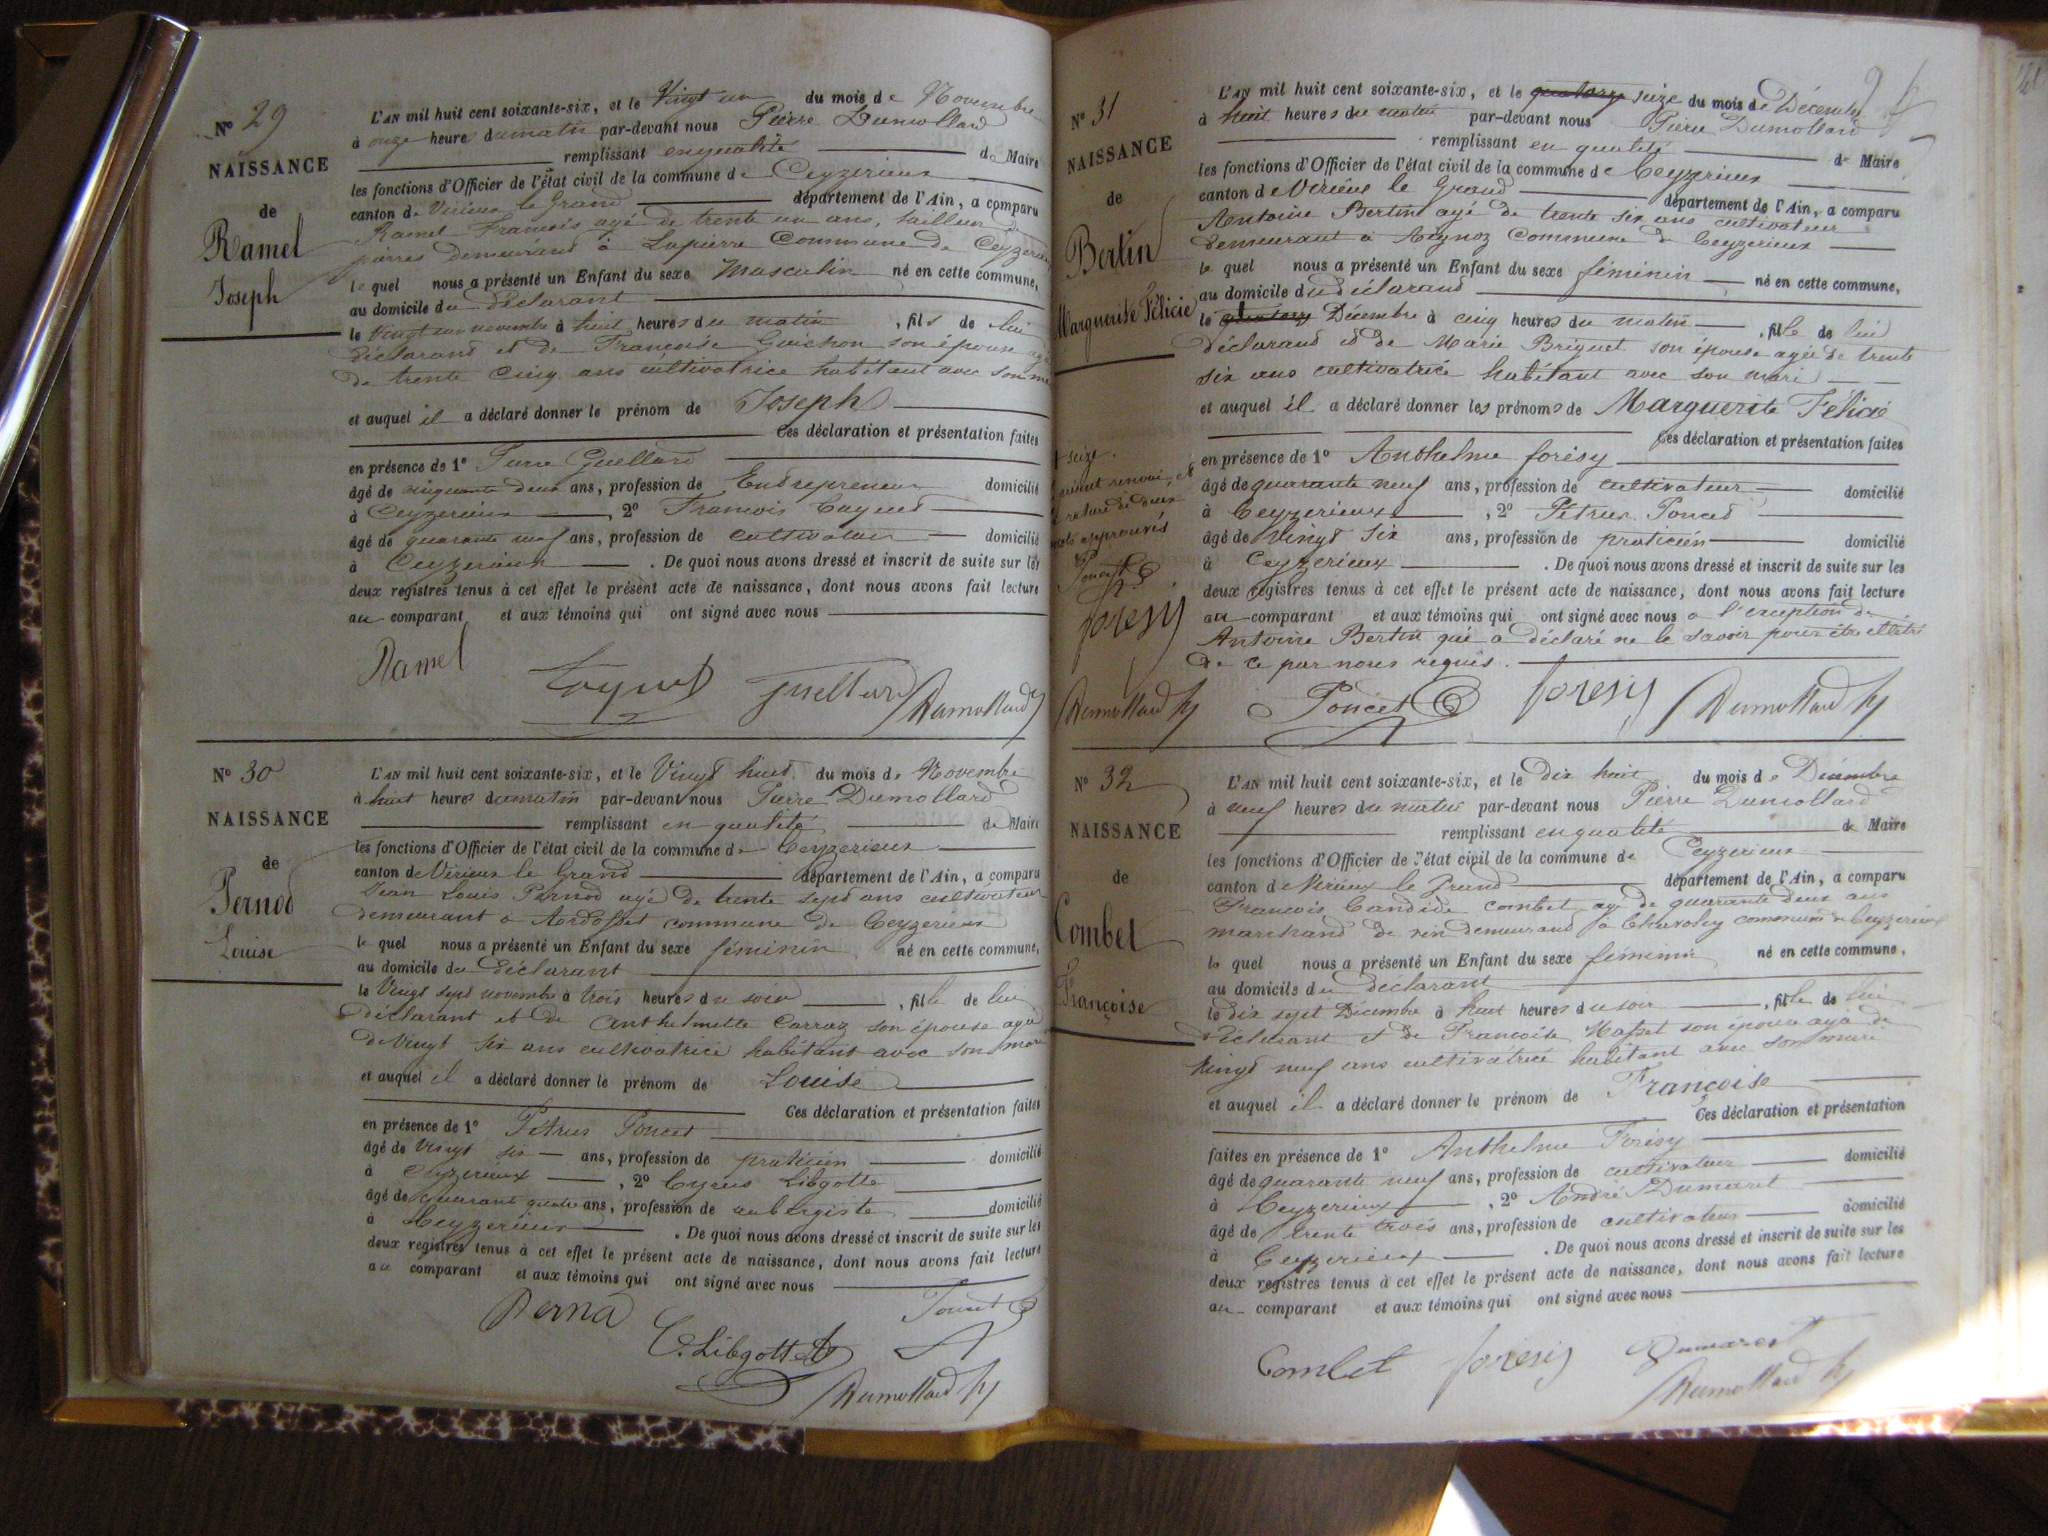 N° 29
NAISSANCE
de
Ramel
Joseph
L'AN mil huit cent soixante-six, et le Vingt un du mois de Novembre
à onze heure du matin par-devant nous Pierre Dumollard
remplissant en qualité de Maire
les fonctions d'Officier de l'état civil de la commune de Ceyzerieux
canton de Virieux le Grand département de l'Ain, a comparu
Ramel François agé de trente un ans, tailleur de
pierres demeurant à Lapierre Commune de Ceyzerieux
le quel nous a présenté un Enfant du sexe Masculin né en cette commune,
au domicile du Déclarant
le Vingt un novembre à huit heures du matin, fils de lui
déclarant et de Françoise Guichon son épouse agée
de trente cinq ans cultivatrice habitant avec son mari
et auquel il a déclaré donner le prénom de Joseph
Ces déclaration et présentation faites
en présence de 1° Pierre Guellard
âgé de cinquante deux ans, profession de Entrepreneur domicilié
à Ceyzerieux, 2° François
âgé de quarante neuf ans, profession de cultivateur domicilié
à Ceyzerieux. De quoi nous avons dressé et inscrit de suite sur les
deux registres tenus à cet effet le présent acte de naissance, dont nous avons fait lecture
au comparant et aux témoins qui ont signé avec nous
Ramel Guellard Dumollard
N° 30
NAISSANCE
de
Pernod
Louise
L'AN mil huit cent soixante-six, et le Vingt huit du mois de Novembre
à huit heures du matin par-devant nous Pierre Dumollard
remplissant en qualité de Maire
les fonctions d'Officier de l'état civil de la commune de Ceyzerieux
canton de Virieux le Grand département de l'Ain, a comparu
Jean Louis Pernod agé de trente sept ans cultivateur
demeurant à Ardosset commune de Ceyzerieux
le quel nous a présenté un Enfant du sexe féminin né en cette commune,
au domicile du Déclarant
le Vingt sept novembre à trois heures du soir, fille de lui
déclarant et de Anthelmette Carraz son épouse agée
de Vingt six ans cultivatrice habitant avec son mari
et auquel il a déclaré donner le prénom de Louise
Ces déclaration et présentation faites
en présence de 1° Pétrus Poncet
âgé de Vingt six ans, profession de praticien domicilié
à Ceyzerieux, 2° Cyrus Libgotte
âgé de quarante quatre ans, profession de aubergiste domicilié
à Ceyzerieux. De quoi nous avons dressé et inscrit de suite sur les
deux registres tenus à cet effet le présent acte de naissance, dont nous avons fait lecture
au comparant et aux témoins qui ont signé avec nous
Perna Poncet
C. Libgotte
Dumollard
N° 31
NAISSANCE
de
Bertin
Marguerite Félicie
L'AN mil huit cent soixante-six, et le quatorze seize du mois de Décembre
à huit heures du matin par-devant nous Pierre Dumollard
remplissant en qualité de Maire
les fonctions d'Officier de l'état civil de la commune de Ceyzerieux
canton de Virieux le Grand département de l'Ain, a comparu
Antoine Bertin agé de trente six ans cultivateur
demeurant à Aignoz Commune de Ceyzerieux
le quel nous a présenté un Enfant du sexe féminin né en cette commune,
au domicile du déclarand
le quatorze Décembre à cinq heures du matin, fille de lui
déclarand et de Marie Briquet son épouse agée de trente
six ans cultivatrice habitant avec son mari
et auquel il a déclaré donner les prénoms de Marguerite Félicie
Ces déclaration et présentation faites
en présence de 1° Anthelme forésy
âgé de quarante neuf ans, profession de cultivateur domicilié
à Ceyzerieux, 2° Pétrus Poncet
âgé de Vingt Six ans, profession de praticien domicilié
à Ceyzerieux. De quoi nous avons dressé et inscrit de suite sur les
deux registres tenus à cet effet le présent acte de naissance, dont nous avons fait lecture
au comparant et aux témoins qui ont signé avec nous à l'exception de
Antoine Bertin qui a déclaré ne le savoir pour être illétré
de ce par nous requis.
seize.
renvoi, et
rature de deux
mots approuvés
Poncet
foresy
Dumollard Poncet foresy Dumollard
N° 32
NAISSANCE
de
Combet
Françoise
L'AN mil huit cent soixante-six, et le dix huit du mois de Décembre
à neuf heures du matin par-devant nous Pierre Dumollard
remplissant en qualité de Maire
les fonctions d'Officier de l'état civil de la commune de Ceyzerieux
canton de Virieux le Grand département de l'Ain, a comparu
François Candide combet agé de quarante deux ans
marchand de vin demeurand à Chavoley commune de Ceyzerieux
le quel nous a présenté un Enfant du sexe féminin né en cette commune,
au domicile du déclarant
le dix sept Décembre à huit heures du soir, fille de lui
déclarant et de Françoise Masset son épouse agée de
vingt neuf ans cultivatrice habitant avec son mari
et auquel il a déclaré donner le prénom de Françoise
Ces déclaration et présentation
faites en présence de 1° Anthelme Forésy
âgé de quarante neuf ans, profession de cultivateur domicilié
à Ceyzerieux, 2° André Dumarest
âgé de trente trois ans, profession de cultivateur domicilié
à Ceyzerieux. De quoi nous avons dressé et inscrit de suite sur les
deux registres tenus à cet effet le présent acte de naissance, dont nous avons fait lecture
au comparant et aux témoins qui ont signé avec nous
Combet foresy Dumarest
Dumollard